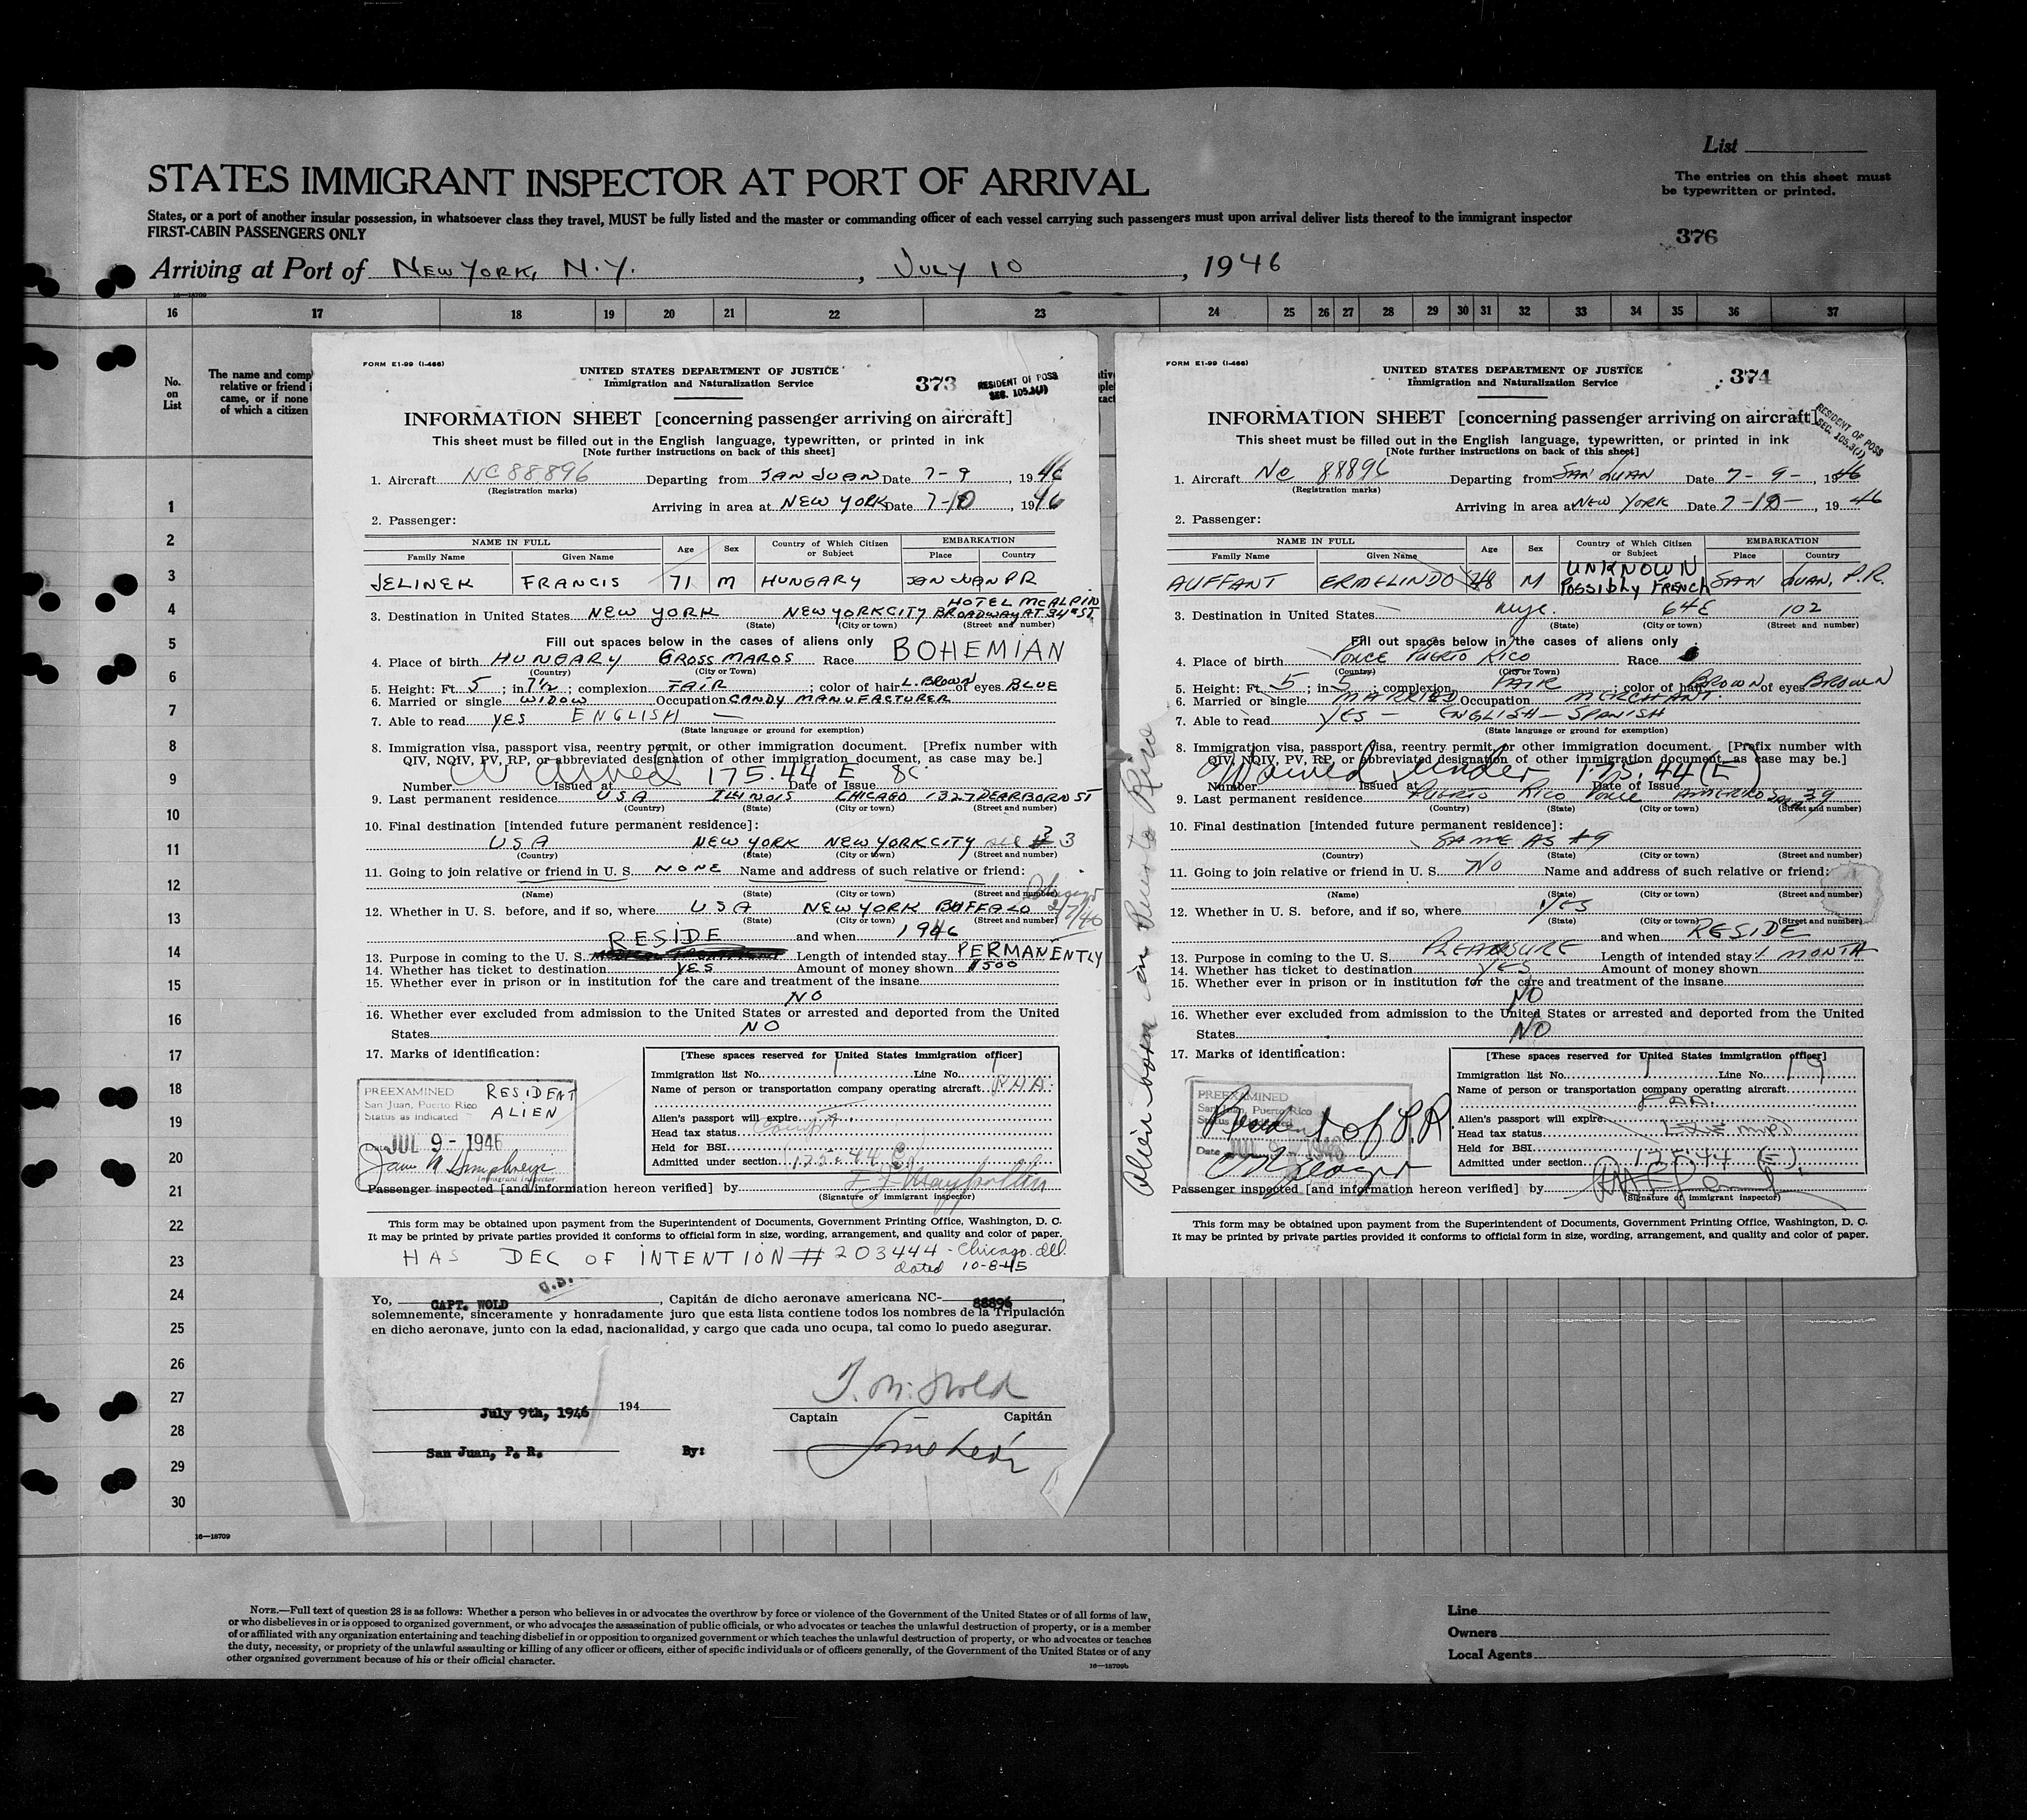 List
STATES IMMIGRANT INSPECTOR AT PORT OF ARRIVAL
The entries on this sheet must
be typewritten or printed.
States, or a port of another insular possession, in whatsoever class they travel, MUST be fully listed and the master or commanding officer of each vessel carrying such passengers must upon arrival deliver lists thereof to the immigrant inspector
FIRST-CABIN PASSENGERS ONLY
376
Arriving at Port of NEW YORK, N.Y., JULY 10, 1946
16—18709
16 17 18 19 20 21 22 23 24 25 26 27 28 29 30 31 32 33 34 35 36 37
No.
on
List
The name and comp
relative or friend i
came, or if none
of which a citizen
1
2
3
4
5
6
7
8
9
10
11
12
13
14
15
16
17
18
19
20
21
22
23
24
25
26
27
28
29
30
16—18709
FORM E1-99 (I-466)
UNITED STATES DEPARTMENT OF JUSTICE
Immigration and Naturalization Service
373
RESIDENT OF POSS
SEC. 105.3(J)
INFORMATION SHEET [concerning passenger arriving on aircraft]
This sheet must be filled out in the English language, typewritten, or printed in ink
[Note further instructions on back of this sheet]
1. Aircraft NC 88896 Departing from SAN JUAN Date 7-9, 1946
(Registration marks)
Arriving in area at NEW YORK Date 7-10, 1946
2. Passenger:
NAME IN FULL Age Sex Country of Which Citizen or Subject EMBARKATION
Family Name Given Name Place Country
JELINEK FRANCIS 71 M HUNGARY SAN JUAN PR
HOTEL MCALPIN
3. Destination in United States NEW YORK NEW YORK CITY BROADWAY AT 34th ST.
(State) (City or town) (Street and number)
Fill out spaces below in the cases of aliens only
4. Place of birth HUNGARY GROSS MAROS Race BOHEMIAN
(Country) (City or Town)
5. Height: Ft. 5; in 7½; complexion FAIR; color of hair L. BROWN of eyes BLUE
6. Married or single WIDOW Occupation CANDY MANUFACTURER
7. Able to read YES ENGLISH —
(State language or ground for exemption)
8. Immigration visa, passport visa, reentry permit, or other immigration document. [Prefix number with
QIV, NQIV, PV, RP, or abbreviated designation of immigration document, as case may be.]
Number Waived Issued at 175.44 E Date of Issue
9. Last permanent residence USA ILLINOIS CHICAGO 1327 DEARBORN ST
(Country) (State) (City or town) (Street and number)
10. Final destination [intended future permanent residence]:
USA NEW YORK NEW YORK CITY see # 3
(Country) (State) (City or town) (Street and number)
11. Going to join relative or friend in U. S. NONE Name and address of such relative or friend:
(Name) (State) (City or town) (Street and number)
12. Whether in U. S. before, and if so, where USA NEW YORK BUFFALO
(State) (City or town) (Street and number)
RESIDE and when 1946
13. Purpose in coming to the U. S. Length of intended stay PERMANENTLY
14. Whether has ticket to destination YES Amount of money shown $500
15. Whether ever in prison or in institution for the care and treatment of the insane
NO
16. Whether ever excluded from admission to the United States or arrested and deported from the United
States NO
17. Marks of identification:
[These spaces reserved for United States immigration officer]
Immigration list No. 1 Line No. 1
Name of person or transportation company operating aircraft PAA.
Alien's passport will expire
Head tax status
Held for BSI
Admitted under section 175.44 E
PREEXAMINED
San Juan, Puerto Rico
Status as indicated
RESIDENT
ALIEN
Date JUL 9 - 1946
Immigrant Inspector
Passenger inspected [and information hereon verified] by
(Signature of immigrant inspector)
This form may be obtained upon payment from the Superintendent of Documents, Government Printing Office, Washington, D. C.
It may be printed by private parties provided it conforms to official form in size, wording, arrangement, and quality and color of paper.
HAS DEC OF INTENTION # 203444 - Chicago. Ill.
dated 10-8-45
Yo, CAPT. WOLD, Capitán de dicho aeronave americana NC-88896,
solemnemente, sinceramente y honradamente juro que esta lista contiene todos los nombres de la Tripulación
en dicho aeronave, junto con la edad, nacionalidad, y cargo que cada uno ocupa, tal como lo puedo asegurar.
July 9th, 1946 194
Captain — Capitán
San Juan, P. R. By:
FORM E1-99 (I-466)
UNITED STATES DEPARTMENT OF JUSTICE
Immigration and Naturalization Service
374
RESIDENT OF POSS
SEC. 105.3(J)
INFORMATION SHEET [concerning passenger arriving on aircraft]
This sheet must be filled out in the English language, typewritten, or printed in ink
[Note further instructions on back of this sheet]
1. Aircraft NC 88896 Departing from SAN JUAN Date 7-9-, 1946
(Registration marks)
Arriving in area at NEW YORK Date 7-10-, 1946
2. Passenger:
NAME IN FULL Age Sex Country of Which Citizen or Subject EMBARKATION
Family Name Given Name Place Country
AUFFANT ERMELINDO 48 M UNKNOWN POSSIBLY FRENCH SAN JUAN, P.R.
3. Destination in United States nyc. 64E 102
(State) (City or town) (Street and number)
Fill out spaces below in the cases of aliens only
4. Place of birth PONCE PUERTO RICO Race
(Country) (City or Town)
5. Height: Ft. 5; in 5; complexion FAIR; color of hair BROWN of eyes BROWN
6. Married or single MARRIED Occupation MERCHANT.
7. Able to read YES — ENGLISH — SPANISH
(State language or ground for exemption)
8. Immigration visa, passport visa, reentry permit, or other immigration document. [Prefix number with
QIV, NQIV, PV, RP, or abbreviated designation of immigration document, as case may be.]
Waived under 175.44 (E)
Number Issued at Date of Issue
9. Last permanent residence PUERTO RICO Ponce 39
(Country) (State) (City or town) (Street and number)
10. Final destination [intended future permanent residence]:
SAME AS #9
(Country) (State) (City or town) (Street and number)
11. Going to join relative or friend in U. S. NO Name and address of such relative or friend:
(Name) (State) (City or town) (Street and number)
12. Whether in U. S. before, and if so, where YES
(State) (City or town) (Street and number)
and when RESIDE
13. Purpose in coming to the U. S. PLEASURE Length of intended stay 1 MONTH
14. Whether has ticket to destination YES Amount of money shown
15. Whether ever in prison or in institution for the care and treatment of the insane
NO
16. Whether ever excluded from admission to the United States or arrested and deported from the United
States NO
17. Marks of identification:
[These spaces reserved for United States immigration officer]
Immigration list No. 1 Line No. 19
Name of person or transportation company operating aircraft
PAA.
Alien's passport will expire
Head tax status
Held for BSI
Admitted under section 175.44 (E).
PREEXAMINED
San Juan, Puerto Rico
Status as indicated
Resident of P.R.
Date JUL 9 1946
Passenger inspected [and information hereon verified] by
(Signature of immigrant inspector)
This form may be obtained upon payment from the Superintendent of Documents, Government Printing Office, Washington, D. C.
It may be printed by private parties provided it conforms to official form in size, wording, arrangement, and quality and color of paper.
Alien born in Puerto Rico
NOTE.—Full text of question 28 is as follows: Whether a person who believes in or advocates the overthrow by force or violence of the Government of the United States or of all forms of law,
or who disbelieves in or is opposed to organized government, or who advocates the assassination of public officials, or who advocates or teaches the unlawful destruction of property, or is a member
of or affiliated with any organization entertaining and teaching disbelief in or opposition to organized government or which teaches the unlawful destruction of property, or who advocates or teaches
the duty, necessity, or propriety of the unlawful assaulting or killing of any officer or officers, either of specific individuals or of officers generally, of the Government of the United States or of any
other organized government because of his or their official character.
16—18709b
Line
Owners
Local Agents